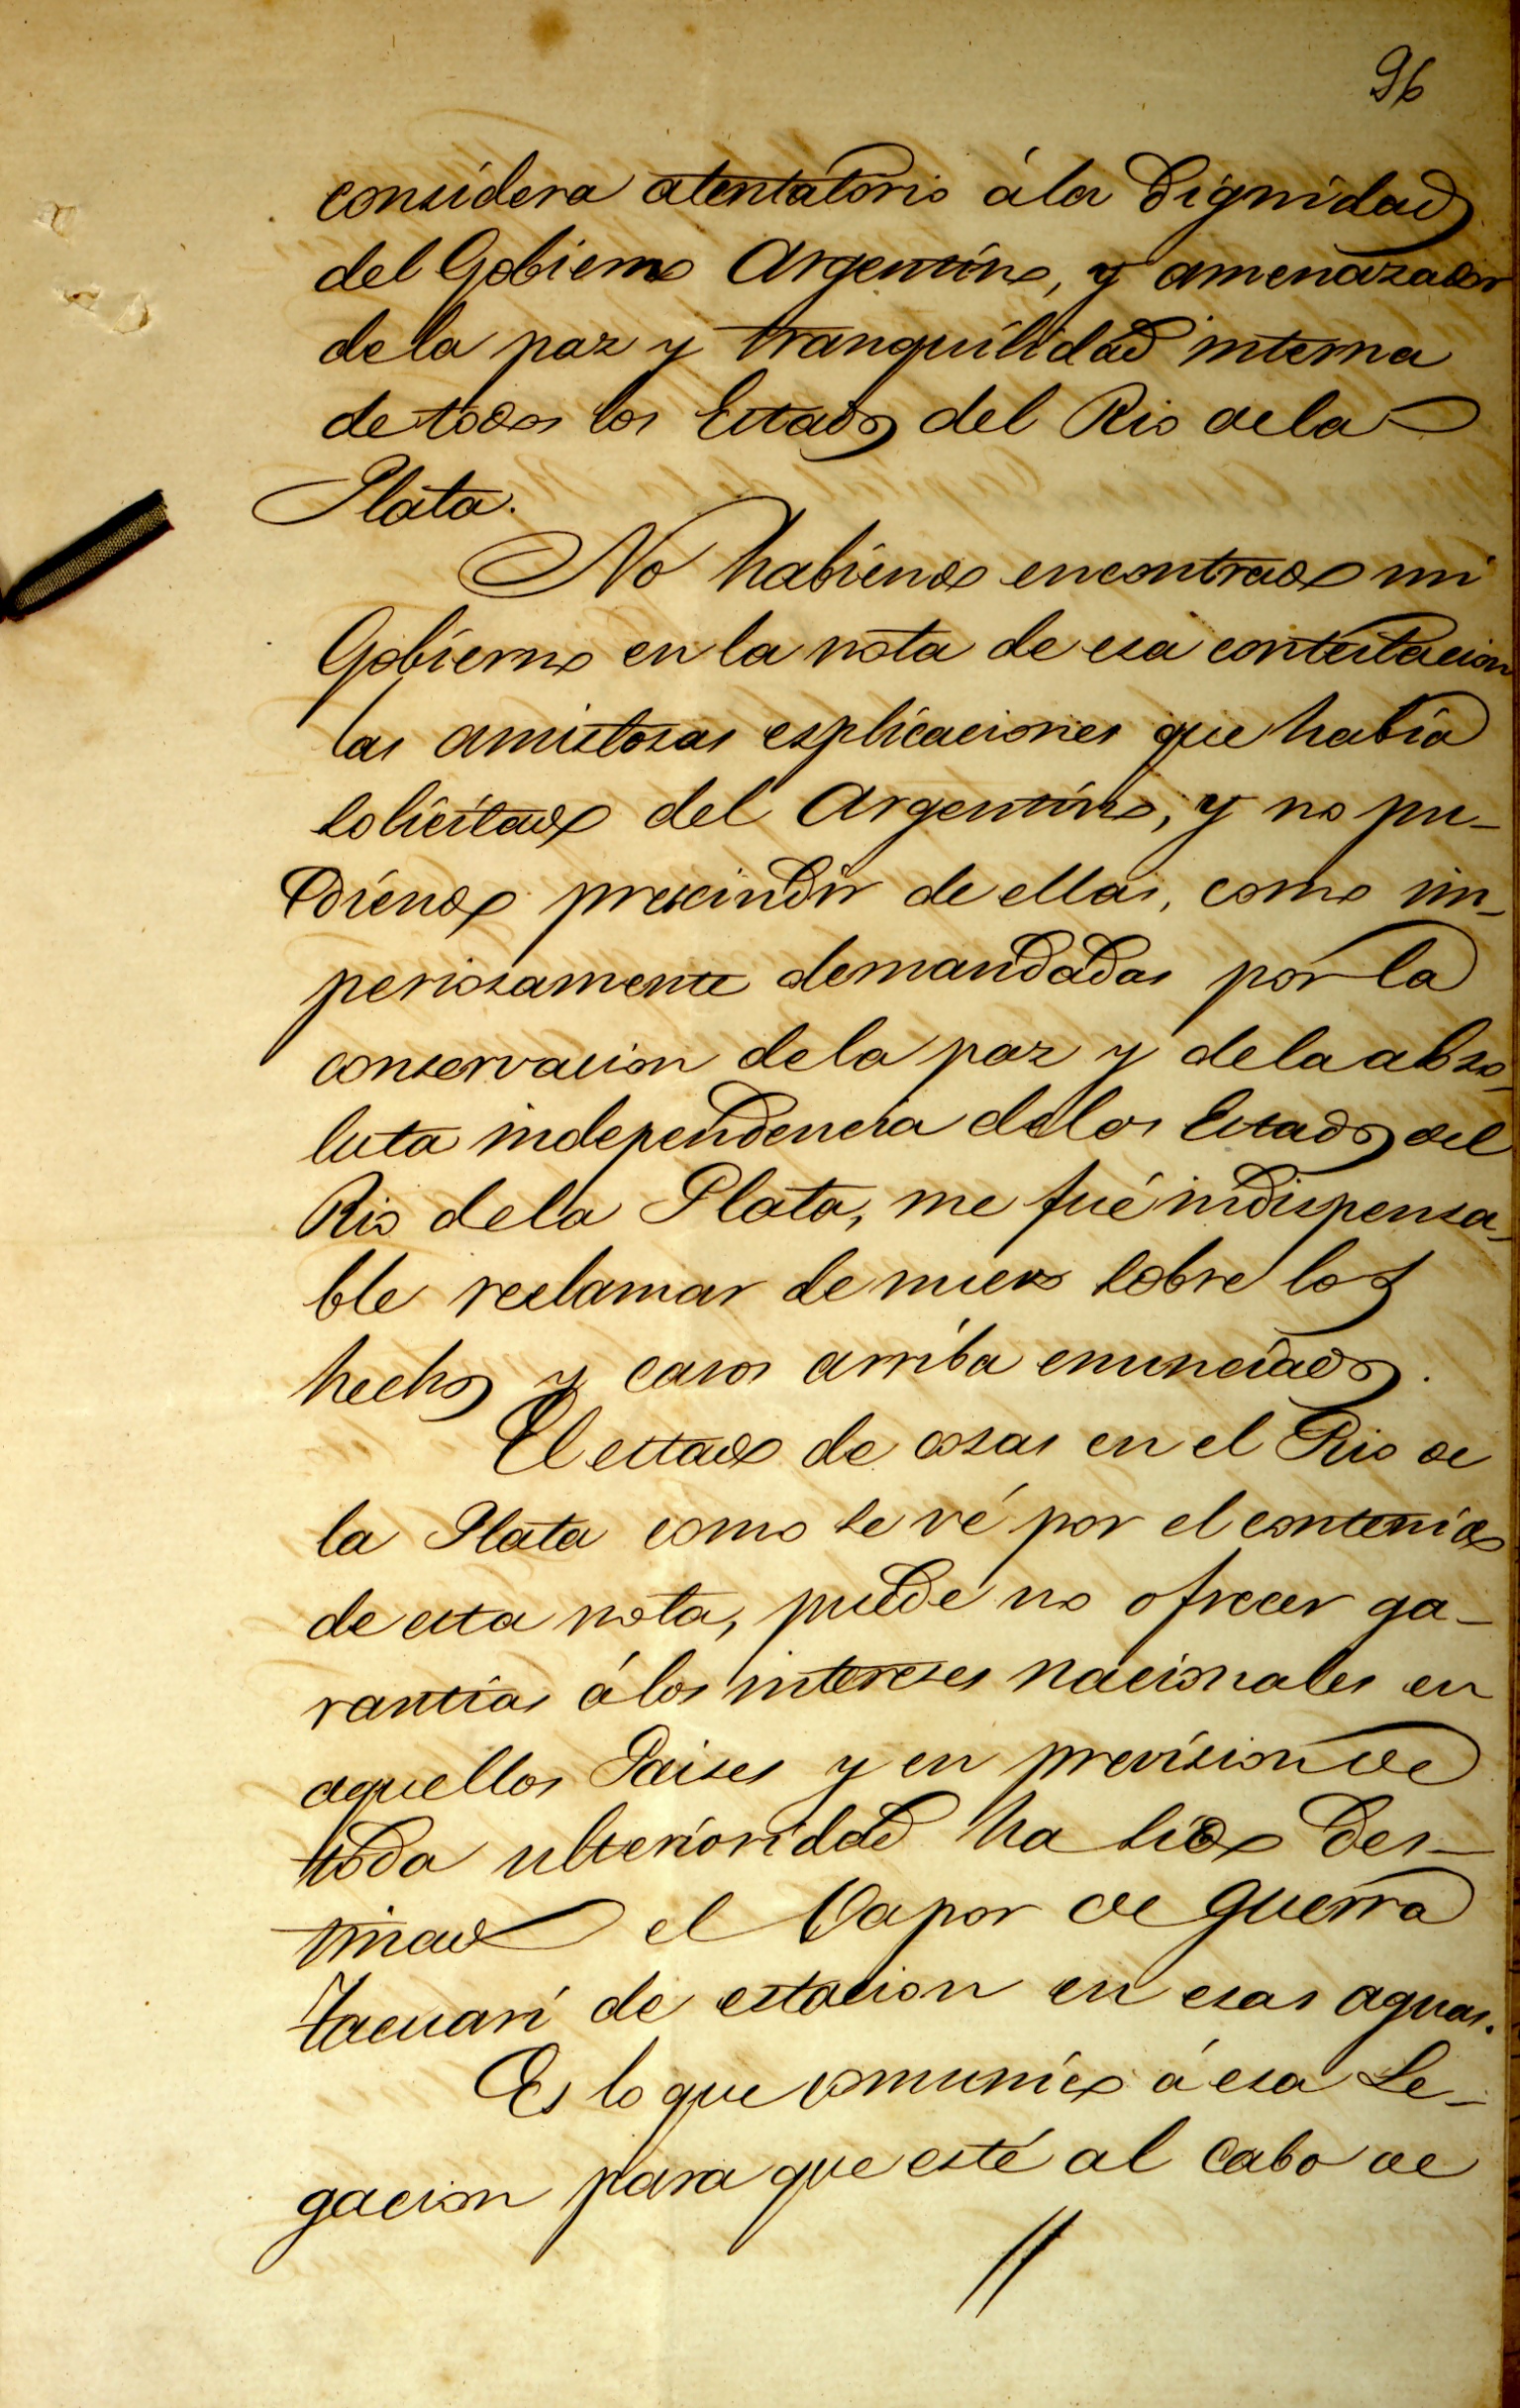 96
considera atentatorio á la dignidad
del Gobierno Argentino, y amenazador
de la paz y tranquilidad interna
de todos los Estados del Rio de la
Plata.
No habiendo encontrado mi
Gobierno en la nota de esa contestacion
las amistosas esplicaciones que habia
solicitado del Argentino, y no pu-
diendo prescindir de ellas, como im-
periosamente demandadas por la
conservacion de la paz y de la abso-
luta independencia de los Estados del
Rio de la Plata, me fué indispensa-
ble reclamar de nuevo sobre los
hechos y casos arriba enunciados.
El estado de cosas en el Rio de
la Plata como se vé por el contenido
de esta nota, puede no ofrecer ga-
rantias á los intereses nacionales en
aquellos Paises y en prevision de
toda ulterioridad ha sido des-
tinado el Vapor de guerra
Tacuarí de estacion en esas aguas.
Es lo que comunico á esa Le-
gacion para que esté al cabo de
//